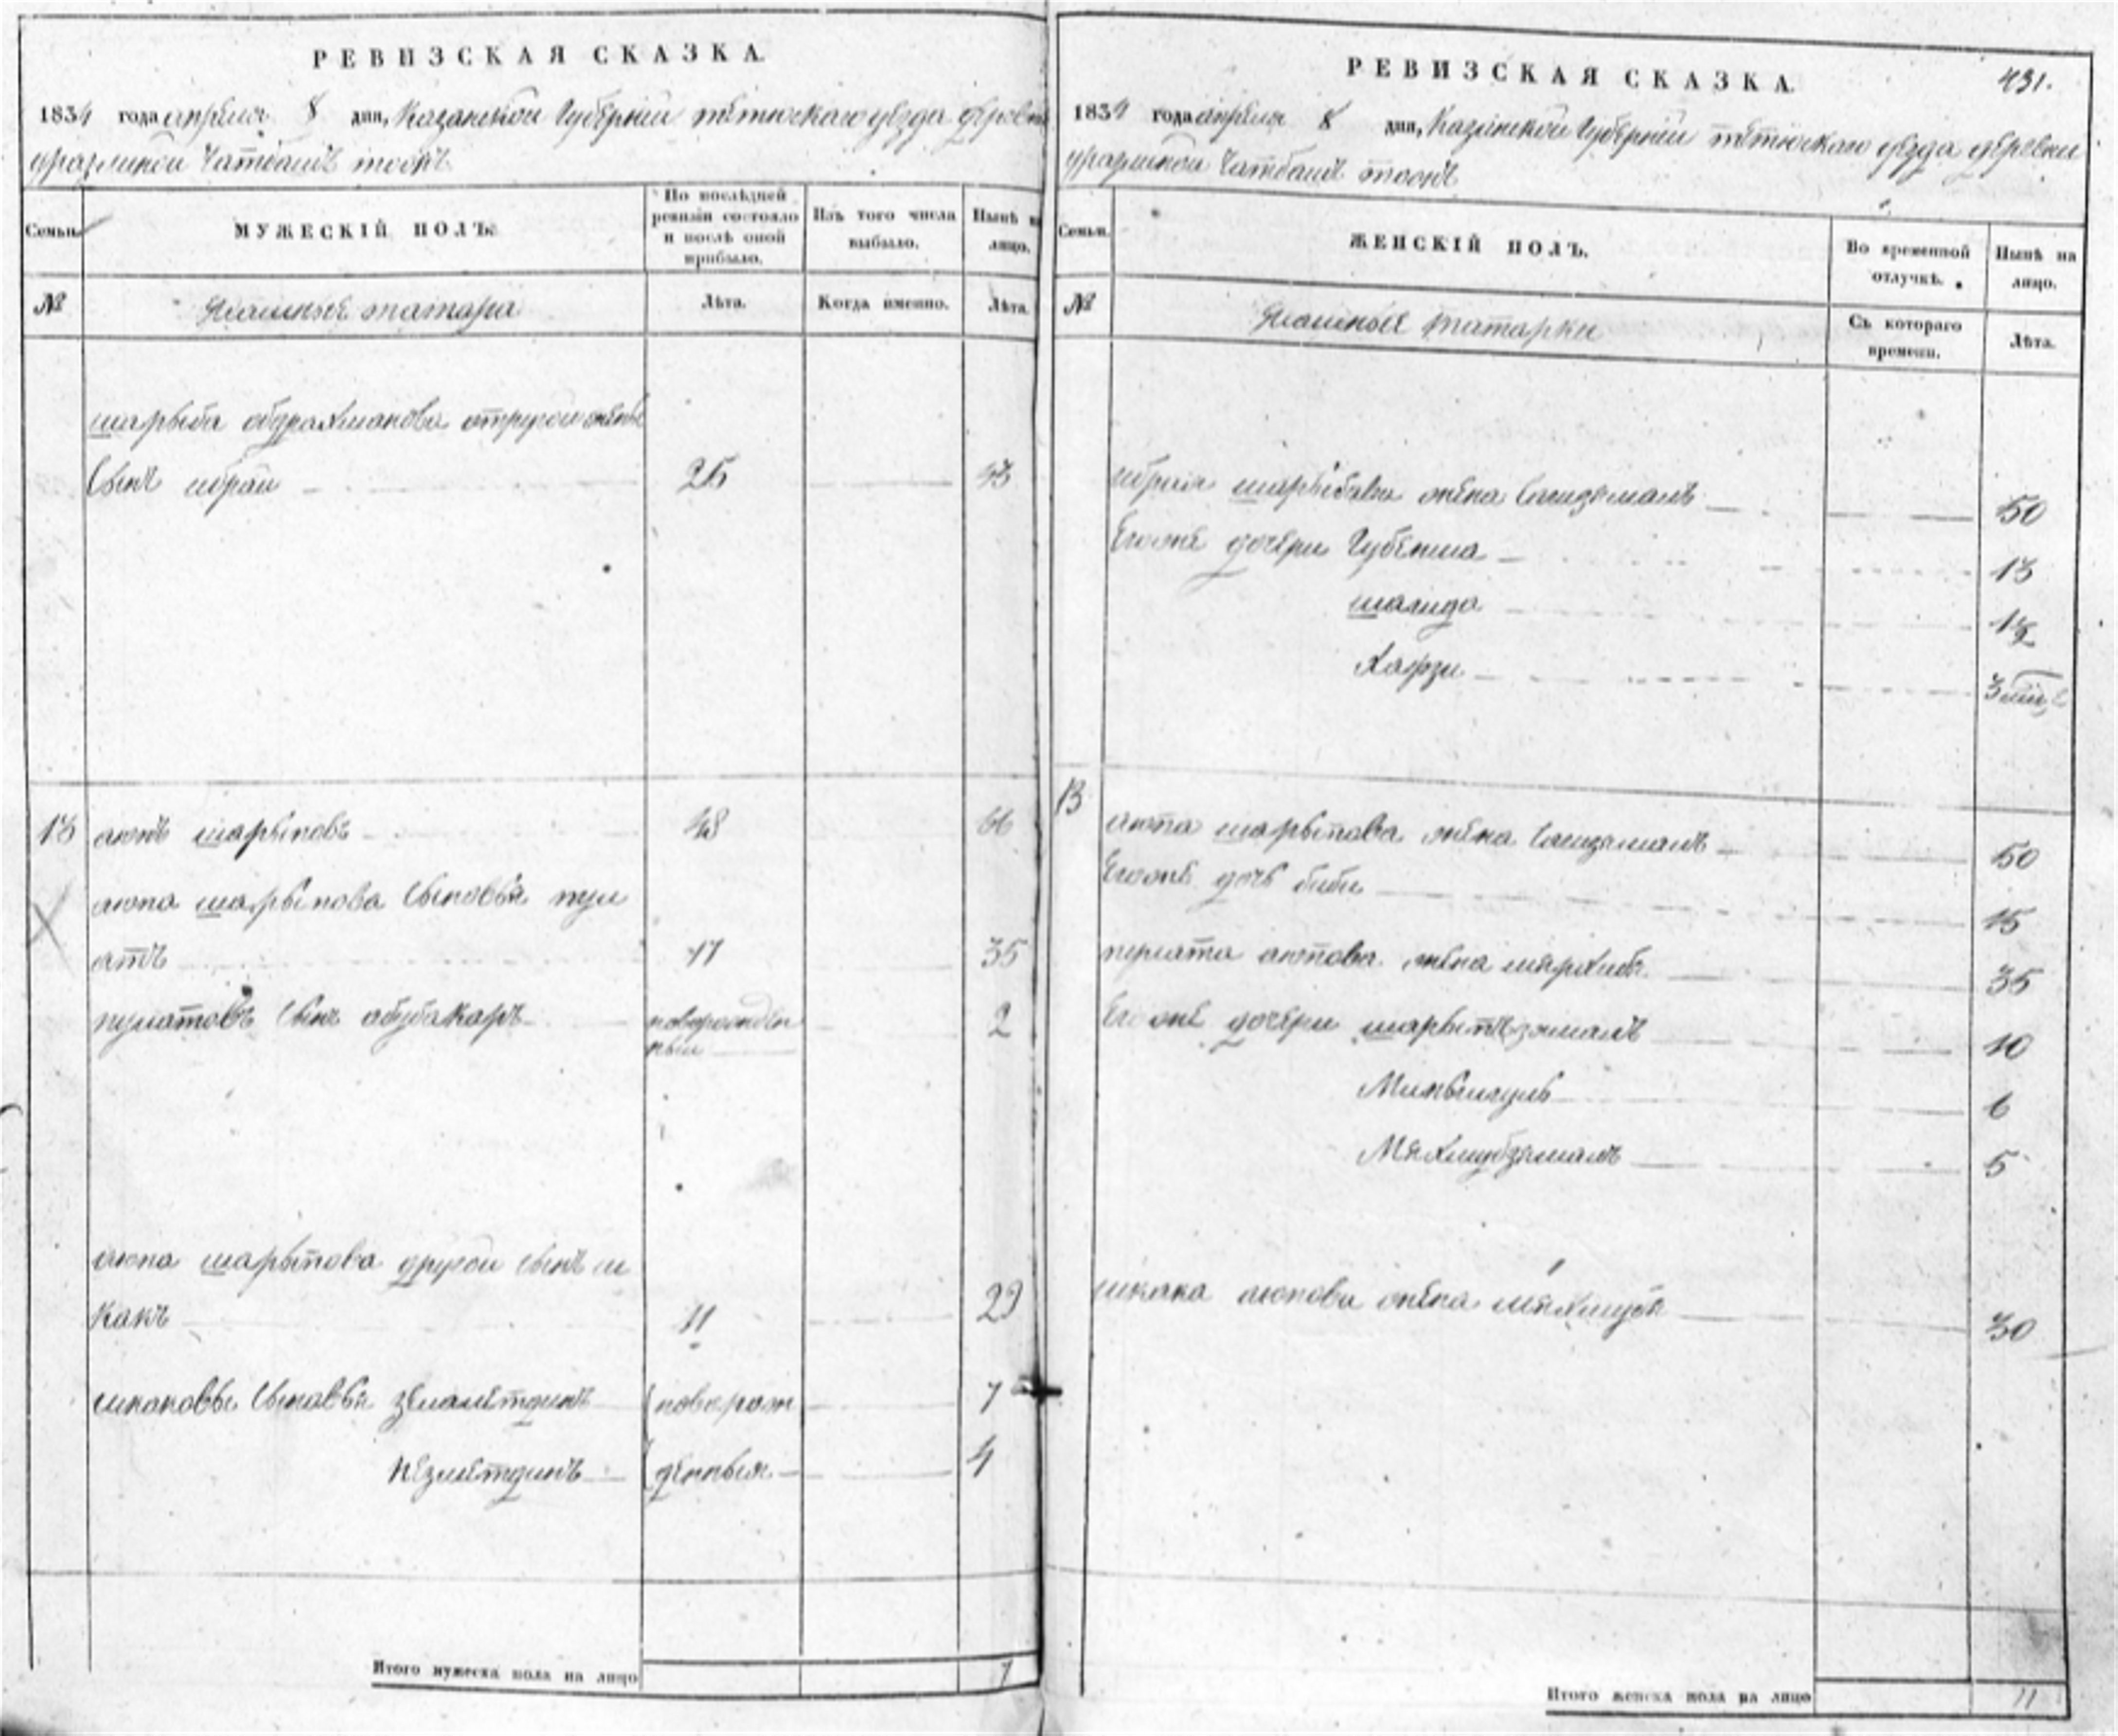 РЕВИЗСКАЯ СКАЗКА.
1834 года апреля 8 дня, Казанской Губернии тетюскаго уезда деревни
уразлиной Чатбашъ тожъ
Семьи.
МУЖЕСКІЙ ПОЛЪ.
По послѣдней ревизіи состояло и послѣ оной прибыло.
Изъ того числа выбыло.
Нынѣ на лицо.
№
Ясашные татара
Лѣта.
Когда именно.
Лѣта.
шарыба абдрахманова отругой жены
Сынъ ибрай 25 43
13 аюпъ шарыповъ 48 66
аюпа шарыпова Сыновья пул
атъ 17 35
пулатовъ Сынъ абубакаръ новорожден
ный 2
аюпа шарыпова другой сынъ и
какъ 11 29
Сыновья новорож 7
денныя 4
Итого мужеска пола на лицо 7
РЕВИЗСКАЯ СКАЗКА. 431.
1834 года апреля 8 дня, Казанской Губернии тетюскаго уезда деревни
уразлиной Чатбашъ тожъ
Семьи.
ЖЕНСКІЙ ПОЛЪ.
Во временной отлучкѣ.
Нынѣ на лицо.
№
Ясашные татарки
Съ котораго времени.
Лѣта.
ибрая шарыбова жена Сагидямалъ 50
Егоже дочери Губейша 13
шагида 12
Хафзи 3
13 аюпа шарыпова жена Сагидзямалъ 50
Егоже дочь биби 15
пулата аюпова жена 35
Егоже дочери 10
6
Мяхмубзямалъ 5
икака аюпова жена 30
Итого женска пола на лицо 11